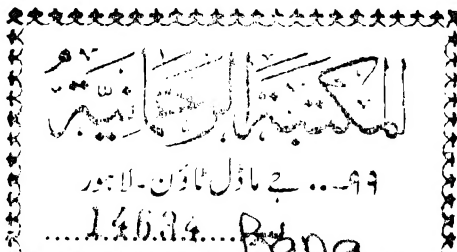 المكتبة الرحمانية
۹۹... جے ماڈل ٹاؤن ۔ لاہور
14634